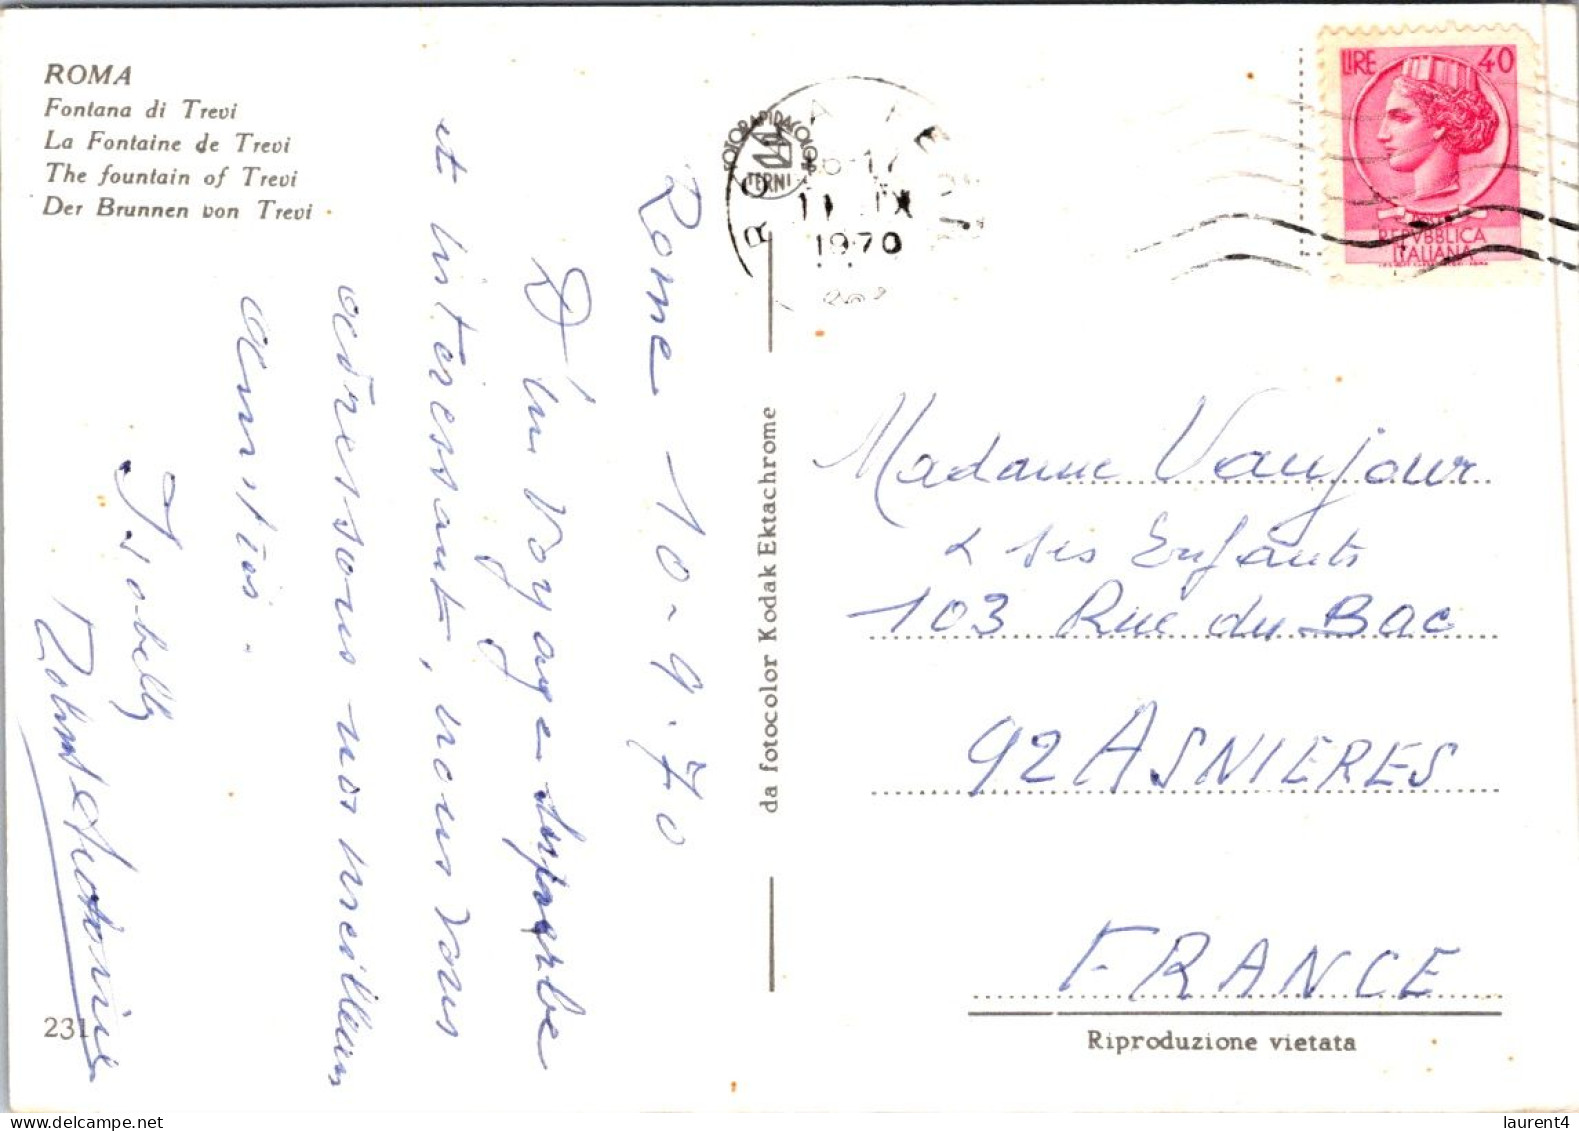 ROMA
Fontana di Trevi
La Fontaine de Trevi
The fountain of Trevi
Der Brunnen von Trevi
Rome 10-9.70
D'un voyage superbe
et intéressant, nous vous
adressons nos meilleurs
amitiés.
Isabelle
231
da fotocolor Kodak Ektachrome
FOTORAPIDACOLOR
TERNI
ROMA FERR
16-17
11 IX
1970
LIRE 40
REPVBBLICA
ITALIANA
Madame Vaujour
& ses Enfants
103 Rue du Bac
92 ASNIERES
FRANCE
Riproduzione vietata
delcampe.net
laurent4